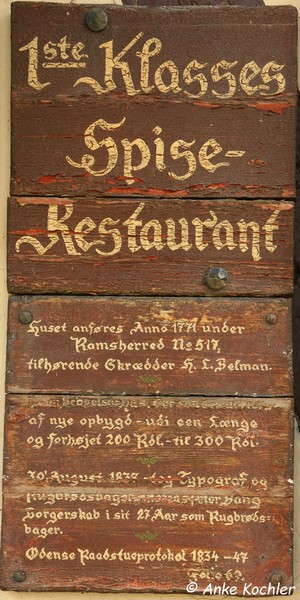 1ste Klasses
Spise-
Restaurant
Huset anføres Anno 1771 under
Ramsherred No 517,
tilhørende Skrædder H. L. Belman.
af nye opbygd - udi een Længe
og forhøjet 200 Rdl. til 300 Rdl.
30' August 1838 - tog Typograf og
Rugbrødsbager
Borgerskab i sit 27 Aar som Rugbrøds-
bager.
Odense Raadstueprotokol 1834 - 47
Folio 62.
© Anke Kochler